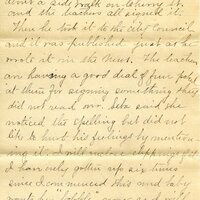 down a side walk on Cherry St.
and the teachers all signed it.
Then he took it to the city council
and it was published just as he
wrote it in the News. The teachers
are having a good deal of fun poked
at them for signing something they
did not read over. Seba said she
noticed the spelling but did not
like to hurt his feelings by mention-
ing it. I will enclose clipping of it
I have only gotten up six times
since I commenced this and baby
wants to